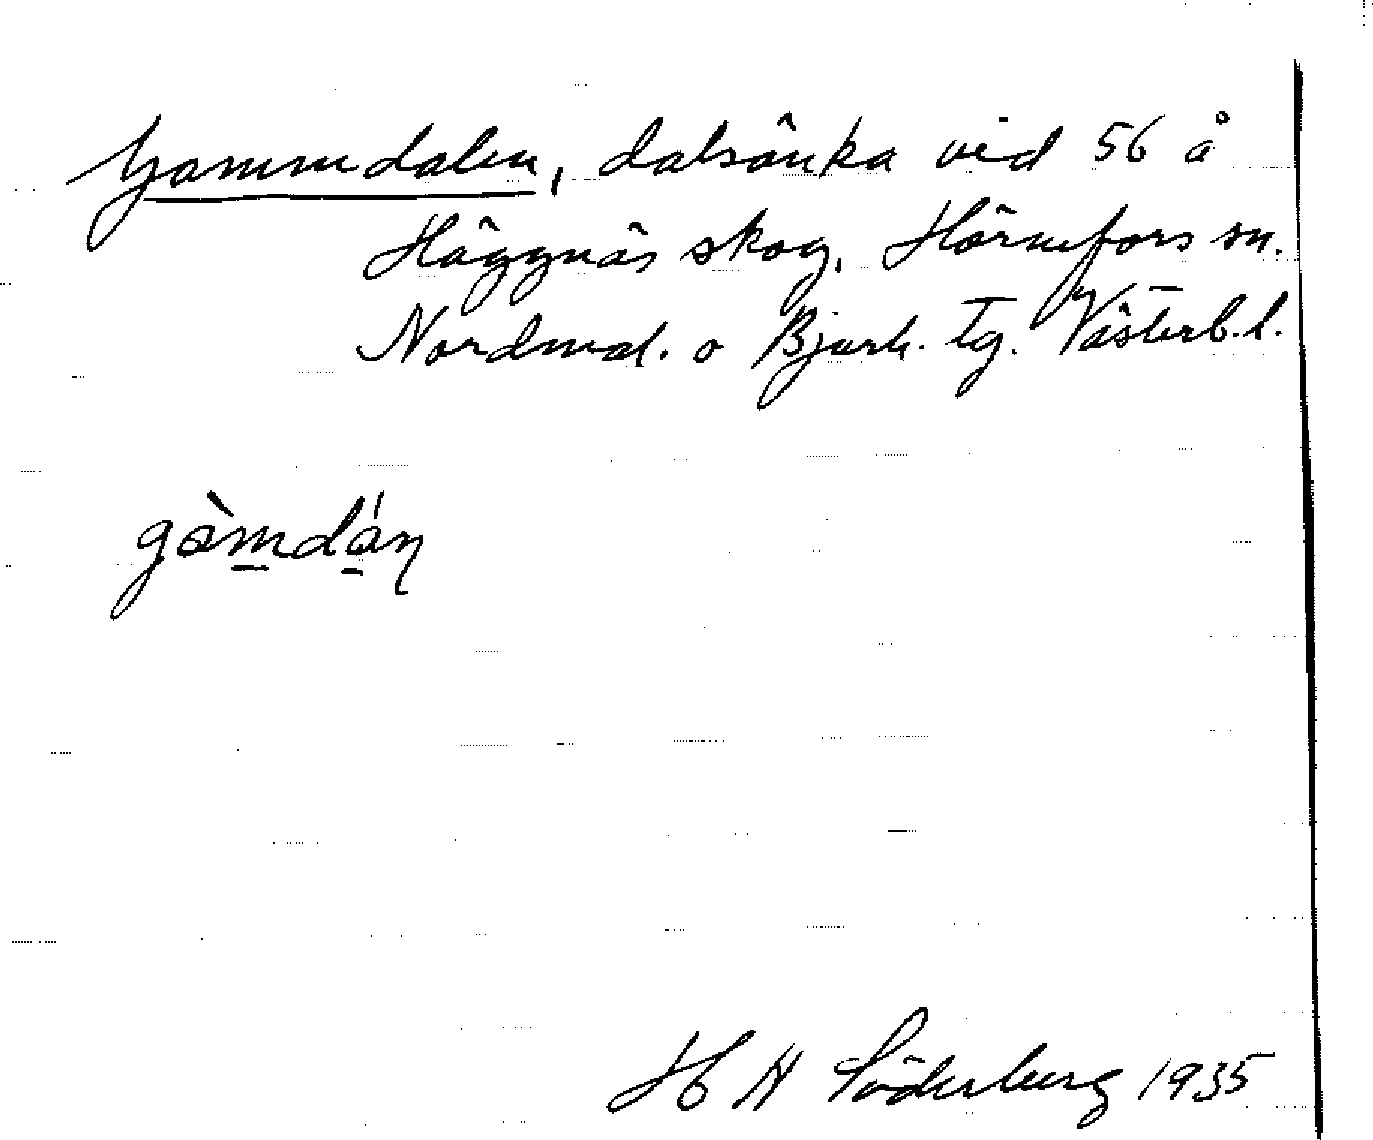 Gammdalen, dalsänka vid 56 å
Häggnäs skog, Hörnefors sn.
Nordmal. o Bjurh. tg. Västerb. l.
gàmdán
H N Söderberg 1935